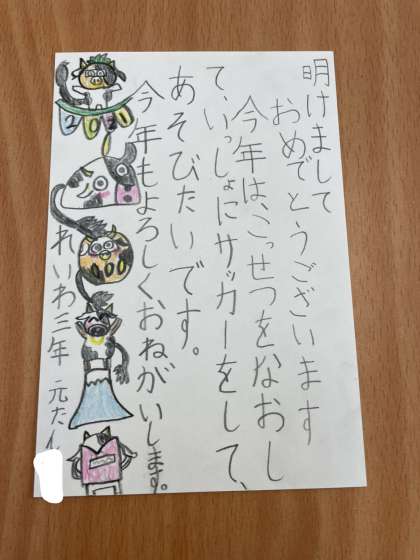 明けまして
おめでとうございます
今年は、こっせつをなおし
て、いっしょにサッカーをして、
あそびたいです。
今年もよろしくおねがいします。
れいわ三年 元たん
2021